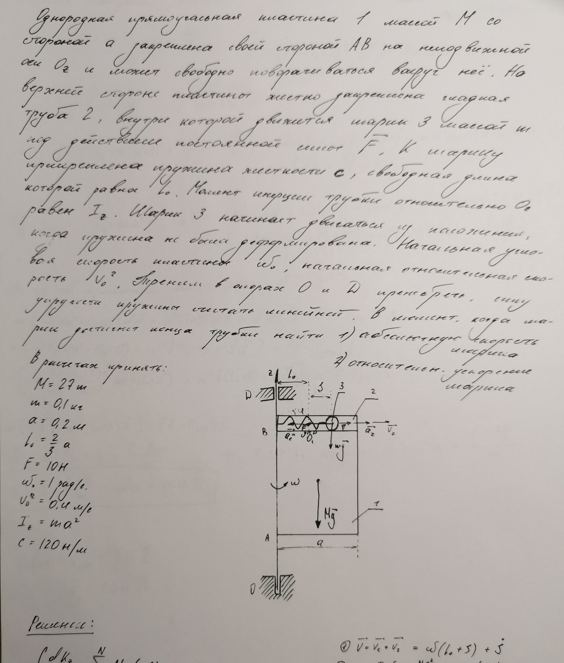 Однородная прямоугольная пластина 1 массой M со
стороной a закреплена своей стороной AB на неподвижной
оси Oz и может свободно поворачиваться вокруг неё. На
верхней стороне пластины жестко закреплена гладкая
труба 2, внутри которой движется шарик 3 массой m
под действием постоянной силы F. К шарику
прикреплена пружина жесткости c, свободная длина
которой равна l₀. Момент инерции трубки относительно Oz
равен I_z. Шарик 3 начинает двигаться из положения,
когда пружина не была деформирована. Начальная угло-
вая скорость пластины ω₀, начальная относительная ско-
рость V₀ʳ. Трением в опорах O и D пренебречь, силу
упругости пружины считать линейной. В момент, когда ша-
рик достигнет конца трубки найти 1) абсолютную скорость
шарика
2) относительн. ускорение
шарика
В расчетах принять:
M = 27m
m = 0,1 кг
a = 0,2 м
l₀ = 2/3 a
F = 10 Н
ω₀ = 1 рад/с.
V₀ʳ = 0,4 м/с
I_z = ma²
c = 120 н/м
z
l₀
S
3
2
D
B
mg
ω
Mg
1
A
a
O
Решение:
② V = Vₑ + Vᵣ = ω(l₀ + S) + Ṡ